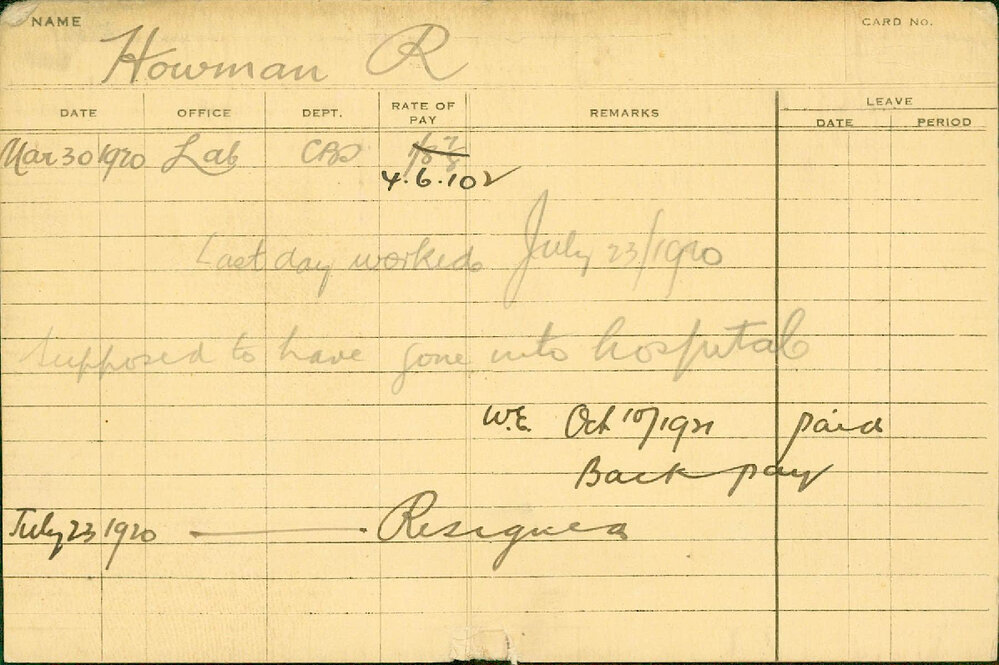 NAME CARD NO.
Howman R
DATE OFFICE DEPT. RATE OF PAY REMARKS LEAVE
DATE PERIOD
Mar 30 1920 Lab
4.6.10
Last day worked July 23/1920
Supposed to have gone into hospital
W.E. Oct 10/1921 paid
Back pay
July 23 1920 Resigned